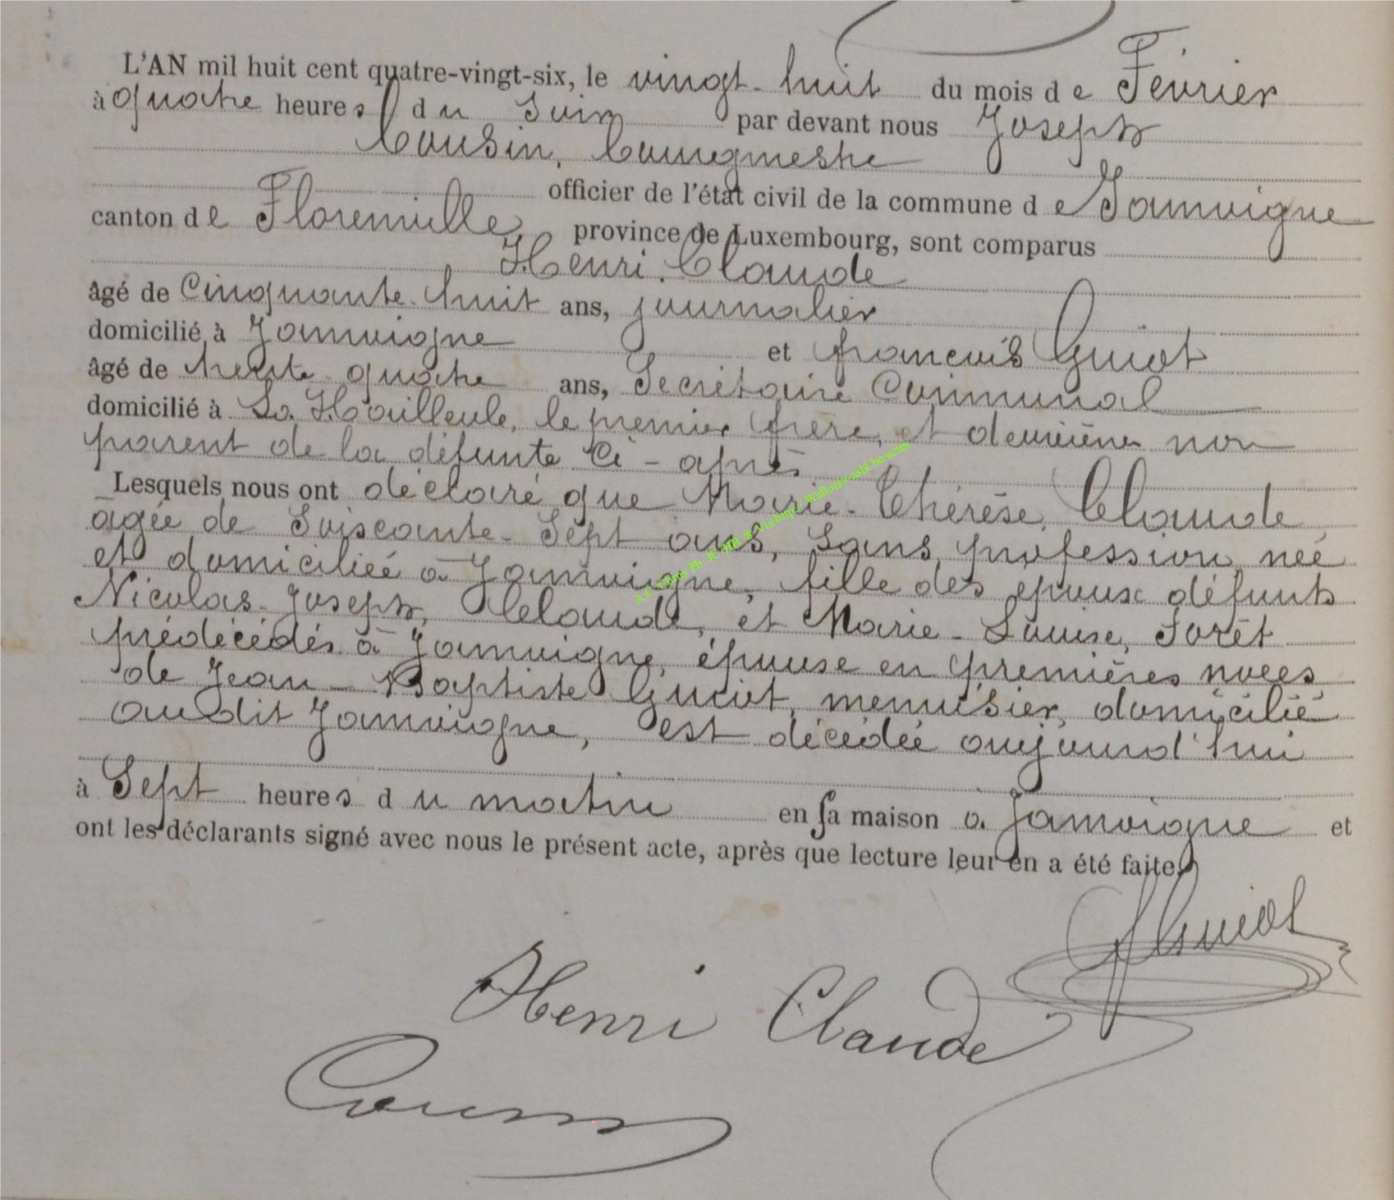 L'AN mil huit cent quatre-vingt-six, le vingt-huit du mois de Février
à quatre heures du Soir par devant nous Joseph
Cousin, bourgmestre
officier de l'état civil de la commune de Jamoigne
canton de Florenville, province de Luxembourg, sont comparus
Henri Claude
âgé de Cinquante-huit ans, journalier
domicilié à Jamoigne et françois Guiot
âgé de trente-quatre ans, Secrétaire Communal
domicilié à La Hailleule, le premier frère, et deuxième non
parent de la défunte Ci-après
Lesquels nous ont déclaré que Marie-Thérèse, Claude
agée de Soixante-Sept ans, Sans profession, née
et domiciliée à Jamoigne, fille des époux défunts
Nicolas-Joseph, Claude, et Marie-Louise, Forêt
prédécédés à Jamoigne, épouse en premières noces
de Jean-Baptiste Guiot, menuisier, domicilié
audit Jamoigne, est décédée aujourd'hui
à Sept heures du matin en sa maison à Jamoigne et
ont les déclarants signé avec nous le présent acte, après que lecture leur en a été faite,
Guiot
Henri Claude
Cousin